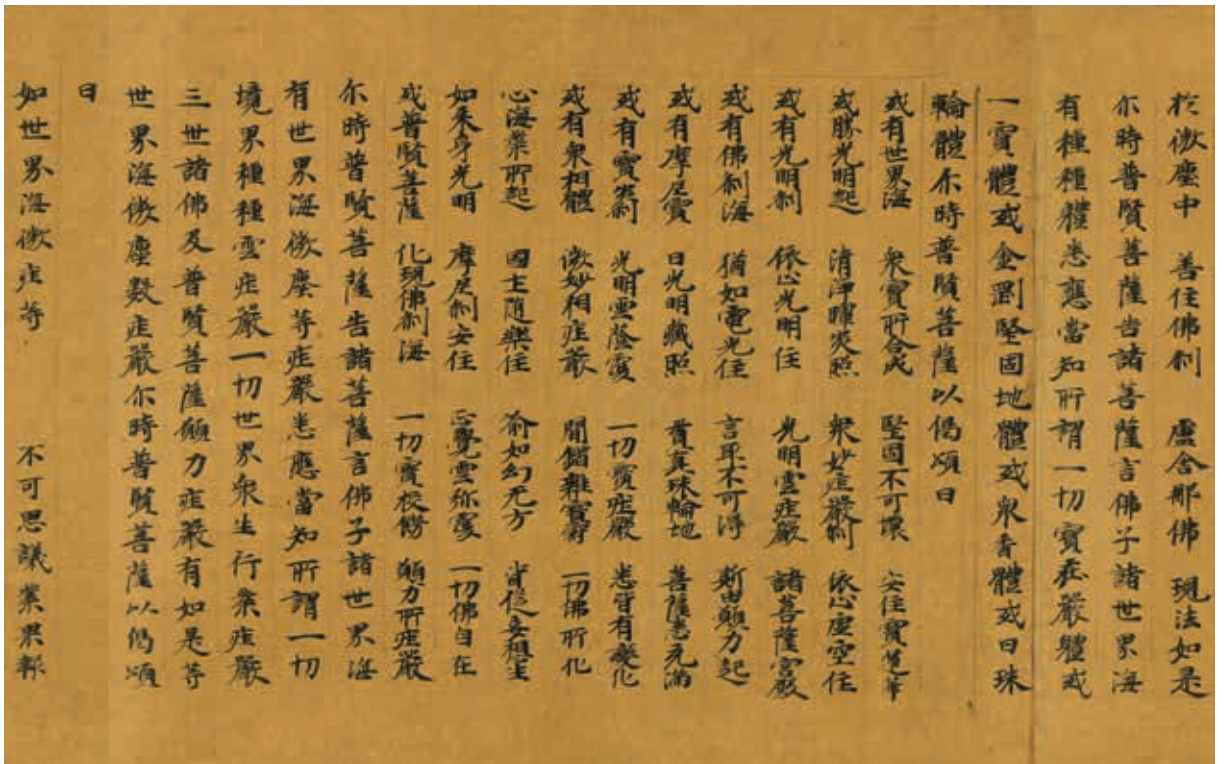 於微塵中　善住佛刹　盧舍那佛　現法如是
尒時普賢菩薩告諸菩薩言佛子諸世界海
有種種體悉應當知所謂一切寶莊嚴體或
一寶體或金剛堅固地體或衆香體或日珠
輪體尒時普賢菩薩以偈頌曰
或有世界海　衆寶所合成　堅固不可壞　安住寶蓮華
或勝光明起　清淨曜炎照　衆妙莊嚴刹　依心虛空住
或有光明刹　依心光明住　光明雲莊嚴　諸菩薩宮殿
或有佛刹海　猶如電光住　言耶不可得　斯由願力起
或有摩尼寶　日光明藏照　香真珠輪地　菩薩悉充滿
或有寶炎刹　光明雲蔭覆　一切寶莊嚴　悉皆有變化
或有衆相體　微妙相莊嚴　間錯雜寶　一切佛所化
心海業所起　國土隨樂住　喻如幻无方　皆從妄想生
如來身光明　摩尼刹安住　正覺雲弥覆　一切佛自在
或普賢菩薩　化現佛刹海　一切寶校餝　願力所莊嚴
尒時普賢菩薩告諸菩薩言佛子諸世界海
有世界海微塵等莊嚴悉應當知所謂一切
境界種種雲莊嚴一切世界衆生行業莊嚴
三世諸佛及普賢菩薩願力莊嚴有如是等
世界海微塵數莊嚴尒時普賢菩薩以偈頌
曰
如世界海微莊等　不可思議業果報